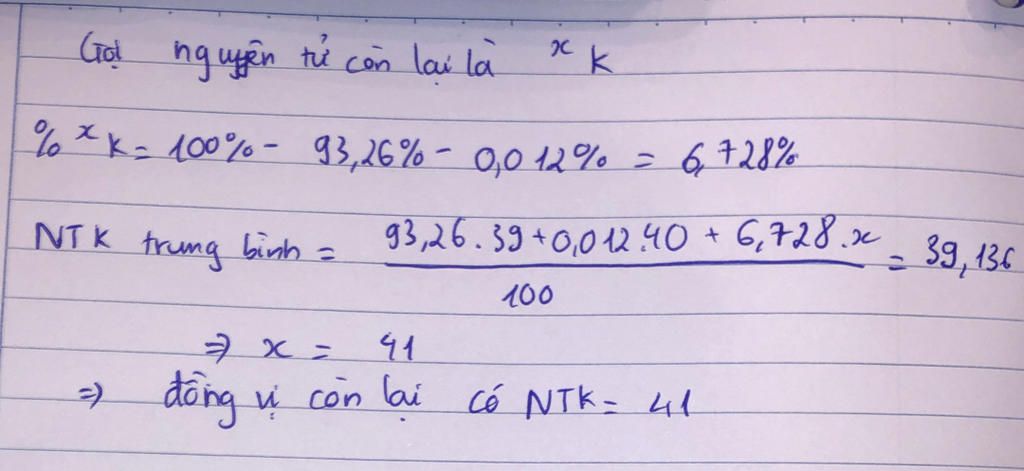 Gọi nguyên tử còn lại là ˣK
% ˣK = 100% - 93,26% - 0,012% = 6,728%
NTK trung bình = 93,26.39+0,012.40 + 6,728.x / 100 = 39,136
⇒ x = 41
⇒ đồng vị còn lại có NTK = 41